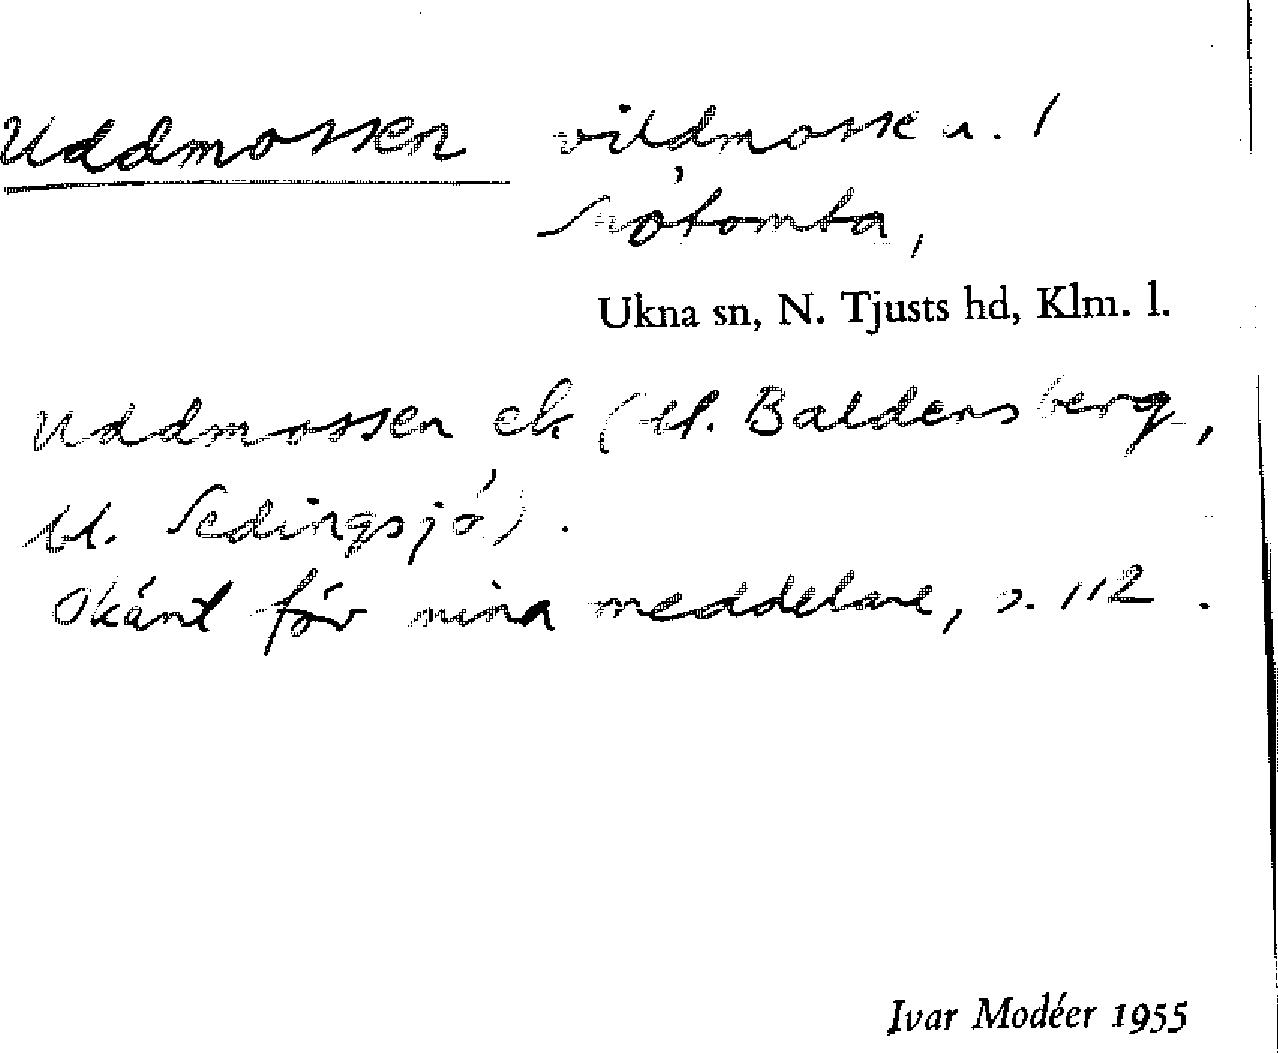 Uddmossen vildmosse u. /
Snötomta,
Ukna sn, N. Tjusts hd, Klm. l.
Uddmossen ek (bl. Baldersberg,
bl. Sedingsjö).
Okänt för mina meddelare, s. 112.
Ivar Modéer 1955